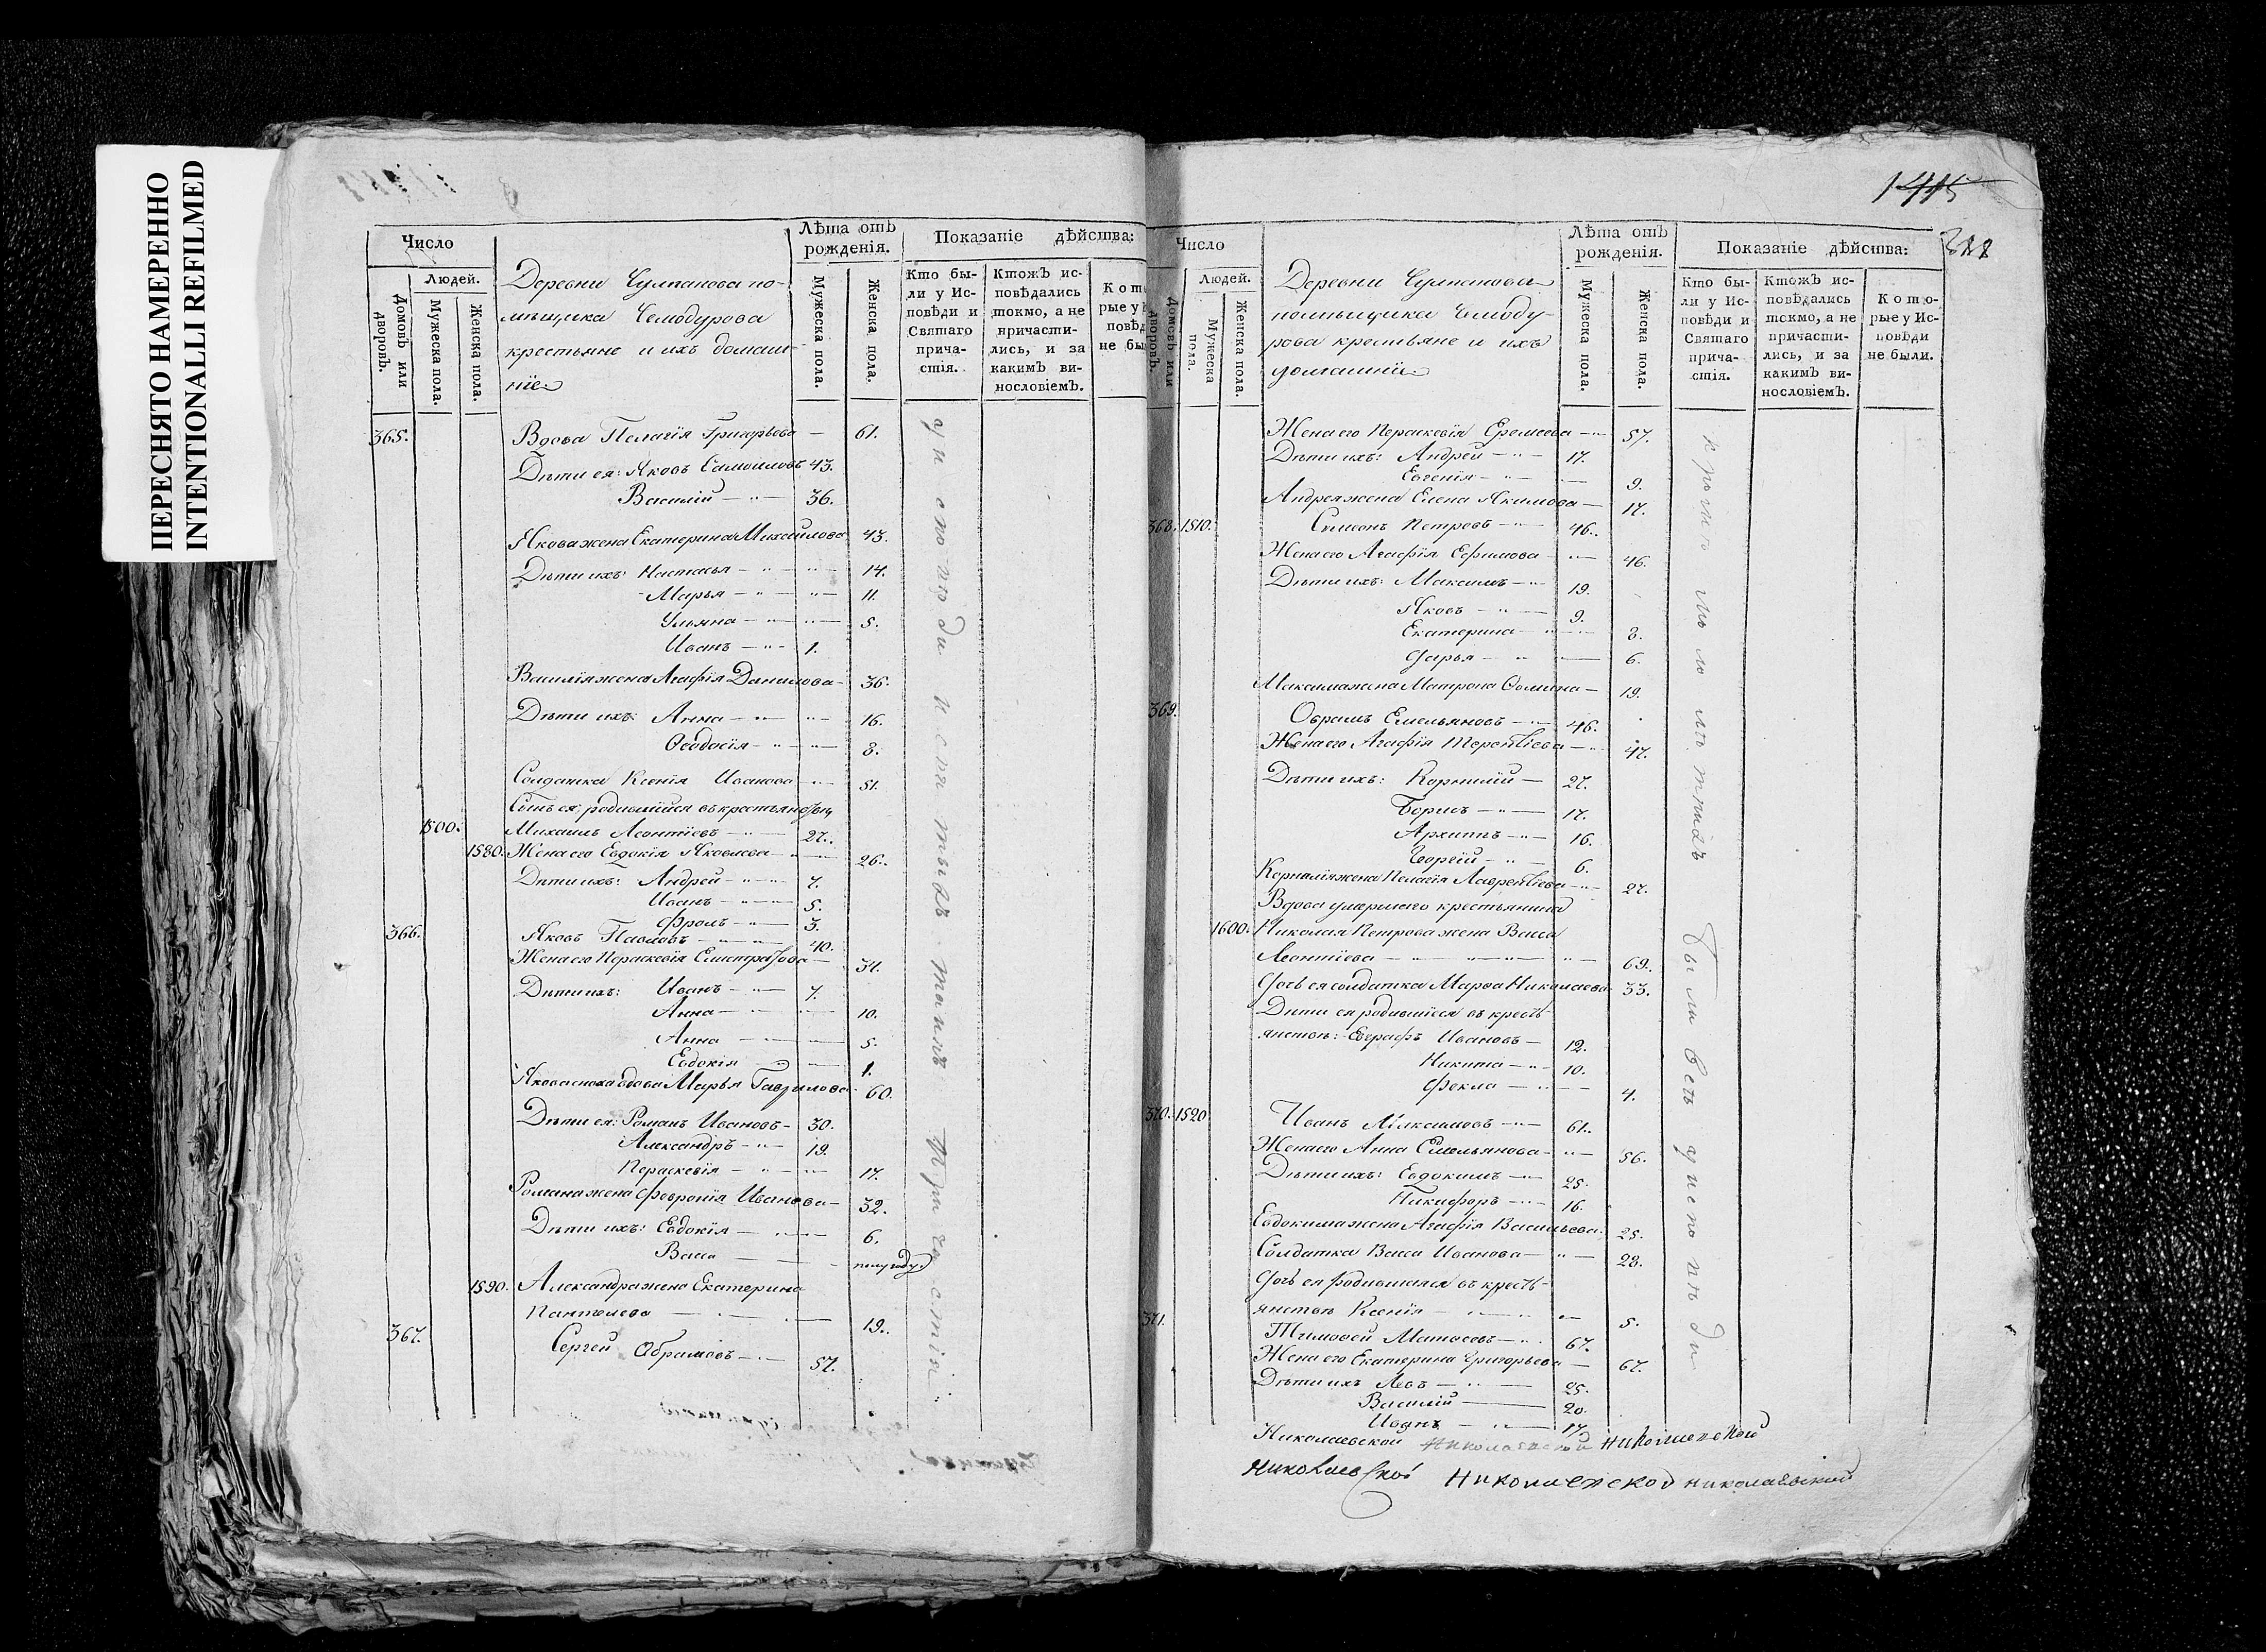 ПЕРЕСНЯТО НАМЕРЕННО
INTENTIONALLI REFILMED
Число
Людей.
Домовъ или дворовъ.
Мужеска пола.
Женска пола.
Деревни Чулпанова по-
мѣщика Чемодурова
крестьяне и ихъ домаш-
ніе
Лѣта отъ рожденія.
Мужеска пола.
Женска пола.
Показаніе дѣйства:
Кто бы-
ли у Ис-
повѣди и
Святаго
прича-
стія.
Ктожъ ис-
повѣдались
токмо, а не
причасти-
лись, и за
какимъ ви-
нословіемъ.
365. Вдова Пелагія Григорьева — 61.
Дѣти ея: Яковъ Самоиловъ 43.
Василій — 36.
Якова жена Екатерина Михаилова 43.
Дѣти ихъ: Настасья — 14.
Марья — 11.
Ульяна — 5.
Иванъ — 1.
Василія жена Агафія Данилова — 36.
Дѣти ихъ: Анна — 16.
Ѳеодосія — 8.
Солдатка Ксенія Иванова — 51.
Сынъ ея родившійся въ крестьянствѣ
1500. Михаилъ Леонтіевъ — 27.
1580. Жена его Евдокія Яковлева — 26.
Дѣти ихъ: Андрей — 7.
Иванъ — 5.
Фролъ — 3.
366. Яковъ Павловъ — 40.
Жена его Параскевія Елистратова — 31.
Дѣти ихъ: Иванъ — 7.
Анна — 10.
Анна — 5.
Евдокія — 1.
Якова сноха вдова Марья Гаврилова 60.
Дѣти ея: Романъ Ивановъ — 30.
Александръ — 19.
Параскевія — 17.
Романа жена Февронія Иванова — 32.
Дѣти ихъ: Евдокія — 6.
Васса — полугоду
1590. Александра жена Екатерина
Пантелева — 19.
367. Сергей Абрамовъ — 57.
1415
Число
Людей.
Домовъ или дворовъ.
Мужеска пола.
Женска пола.
Деревни Чулпанова
помѣщика Чемоду-
рова крестьяне и ихъ
домашніе
Лѣта отъ рожденія.
Мужеска пола.
Женска пола.
Показаніе дѣйства:
Кто бы-
ли у Ис-
повѣди и
Святаго
прича-
стія.
Ктожъ ис-
повѣдались
токмо, а не
причасти-
лись, и за
какимъ ви-
нословіемъ.
Кото-
рые у Ис-
повѣди
не были.
Жена его Параскевія Еремеева — 57.
Дѣти ихъ: Андрей — 17.
Евгенія — 9.
Андрея жена Елена Якимова — 17.
368. 1510. Симеонъ Петровъ — 46.
Жена его Агафія Ефимова — 46.
Дѣти ихъ: Максимъ — 19.
Яковъ — 9.
Екатерина — 8.
Дарья — 6.
Максима жена Матрона Ѳомина — 19.
369. Обрамъ Емельяновъ — 46.
Жена его Агафія Терентіева — 47.
Дѣти ихъ: Корнилій — 27.
Борисъ — 17.
Архипъ — 16.
Георгій — 6.
Корнилія жена Пелагія Лаврентіева — 27.
Вдова умершаго крестьянина
1600. Николая Петрова жена Васса
Леонтіева — 69.
Дочь ея солдатка Марѳа Николаева 33.
Дѣти ея родившіеся въ кресть-
янствѣ: Евграфъ Ивановъ — 12.
Никита — 10.
Фекла — 4.
370. 1520 Иванъ Максимовъ — 61.
Жена его Анна Емельянова — 56.
Дѣти ихъ: Евдокимъ — 25.
Никифоръ — 16.
Евдокима жена Агафія Васильева 25.
Солдатка Васса Иванова — 28.
Дочь ея родившаяся въ кресть-
янствѣ Ксенія — 5.
371. Тимоѳей Матвеевъ — 67.
Жена его Екатерина Григорьева — 67.
Дѣти ихъ Левъ — 25.
Василій — 20.
Иванъ — 17.
Николаевской Николаевской Николаевской
Николаевской Николаевской николаевской